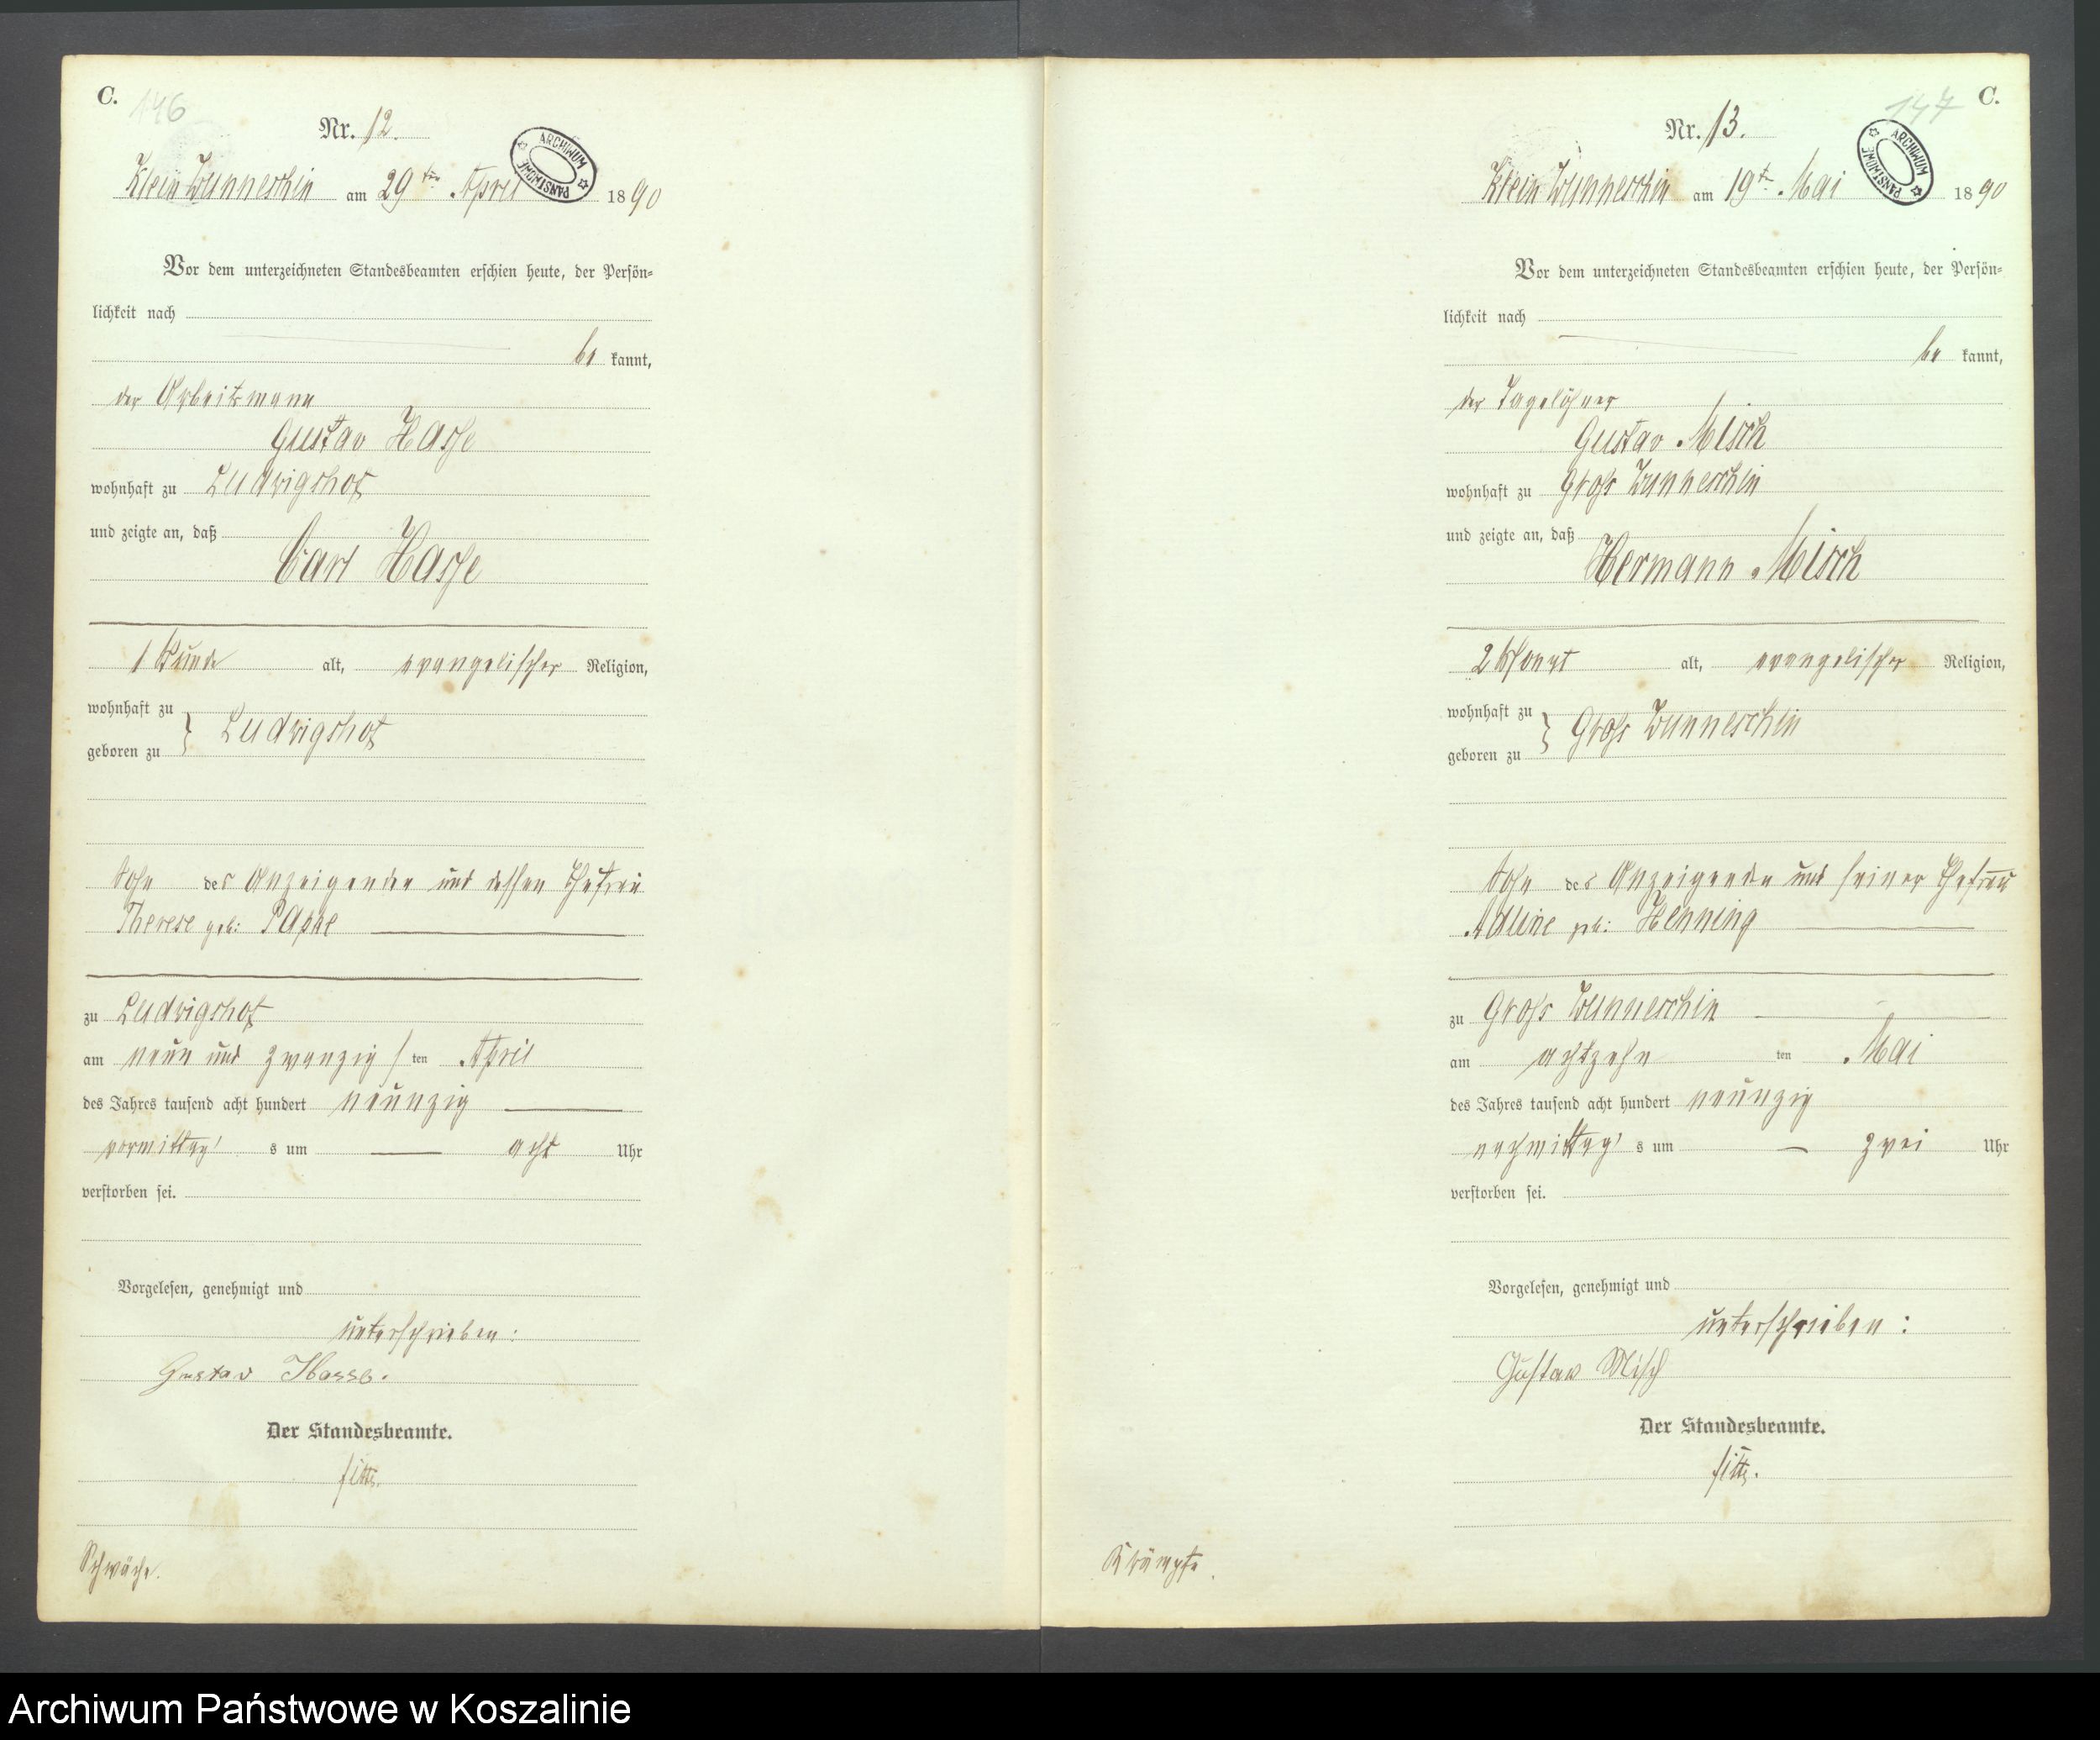 C.
146
Nr. 12.
ARCHIWUM PAŃSTWOWE
Klein Wunneschin am 29ten April 1890
Vor dem unterzeichneten Standesbeamten erschien heute, der Persön=
lichkeit nach
be kannt,
der Arbeitsmann
Gustav Hasse
wohnhaft zu Ludwigshof
und zeigte an, daß
Carl Hasse
1 Stunde alt, evangelischer Religion,
wohnhaft zu
geboren zu } Ludwigshof
Sohn des Anzeigenden und dessen Ehefrau
Therese geb:
zu Ludwigshof
am neun und zwanzigs ten April
des Jahres tausend acht hundert neunzig
vormittag s um acht Uhr
verstorben sei.
Vorgelesen, genehmigt und
unterschrieben:
Gustav Hasse.
Der Standesbeamte.
Schwäche.
147
C.
Nr. 13.
ARCHIWUM PAŃSTWOWE
Klein Wunneschin am 19ten Mai 1890
Vor dem unterzeichneten Standesbeamten erschien heute, der Persön=
lichkeit nach
be kannt,
der Tagelöhner
Gustav Misch
wohnhaft zu Groß Wunneschin
und zeigte an, daß
Hermann Misch
2 Monat alt, evangelischer Religion,
wohnhaft zu
geboren zu } Groß Wunneschin
Sohn des Anzeigenden und seiner Ehefrau
geb: Henning
zu Groß Wunneschin
am achtzehn ten Mai
des Jahres tausend acht hundert neunzig
nachmittag s um zwei Uhr
verstorben sei.
Vorgelesen, genehmigt und
unterschrieben:
Gustav Misch
Der Standesbeamte.
Krämpfe.
Archiwum Państwowe w Koszalinie